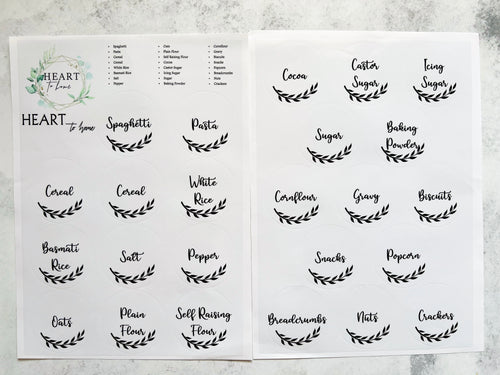 HEART
to home
HEART to home
Spaghetti
Pasta
Cereal
Cereal
White Rice
Basmati Rice
Salt
Pepper
Oats
Plain Flour
Self Raising Flour
Cocoa
Castor Sugar
Icing Sugar
Sugar
Baking Powder
Cornflour
Gravy
Biscuits
Snacks
Popcorn
Breadcrumbs
Nuts
Crackers
Spaghetti Pasta
Cereal Cereal White
Rice
Basmati
Rice Salt Pepper
Oats Plain
Flour Self Raising
Flour
Cocoa Castor
Sugar Icing
Sugar
Sugar Baking
Powder
Cornflour Gravy Biscuits
Snacks Popcorn
Breadcrumbs Nuts Crackers